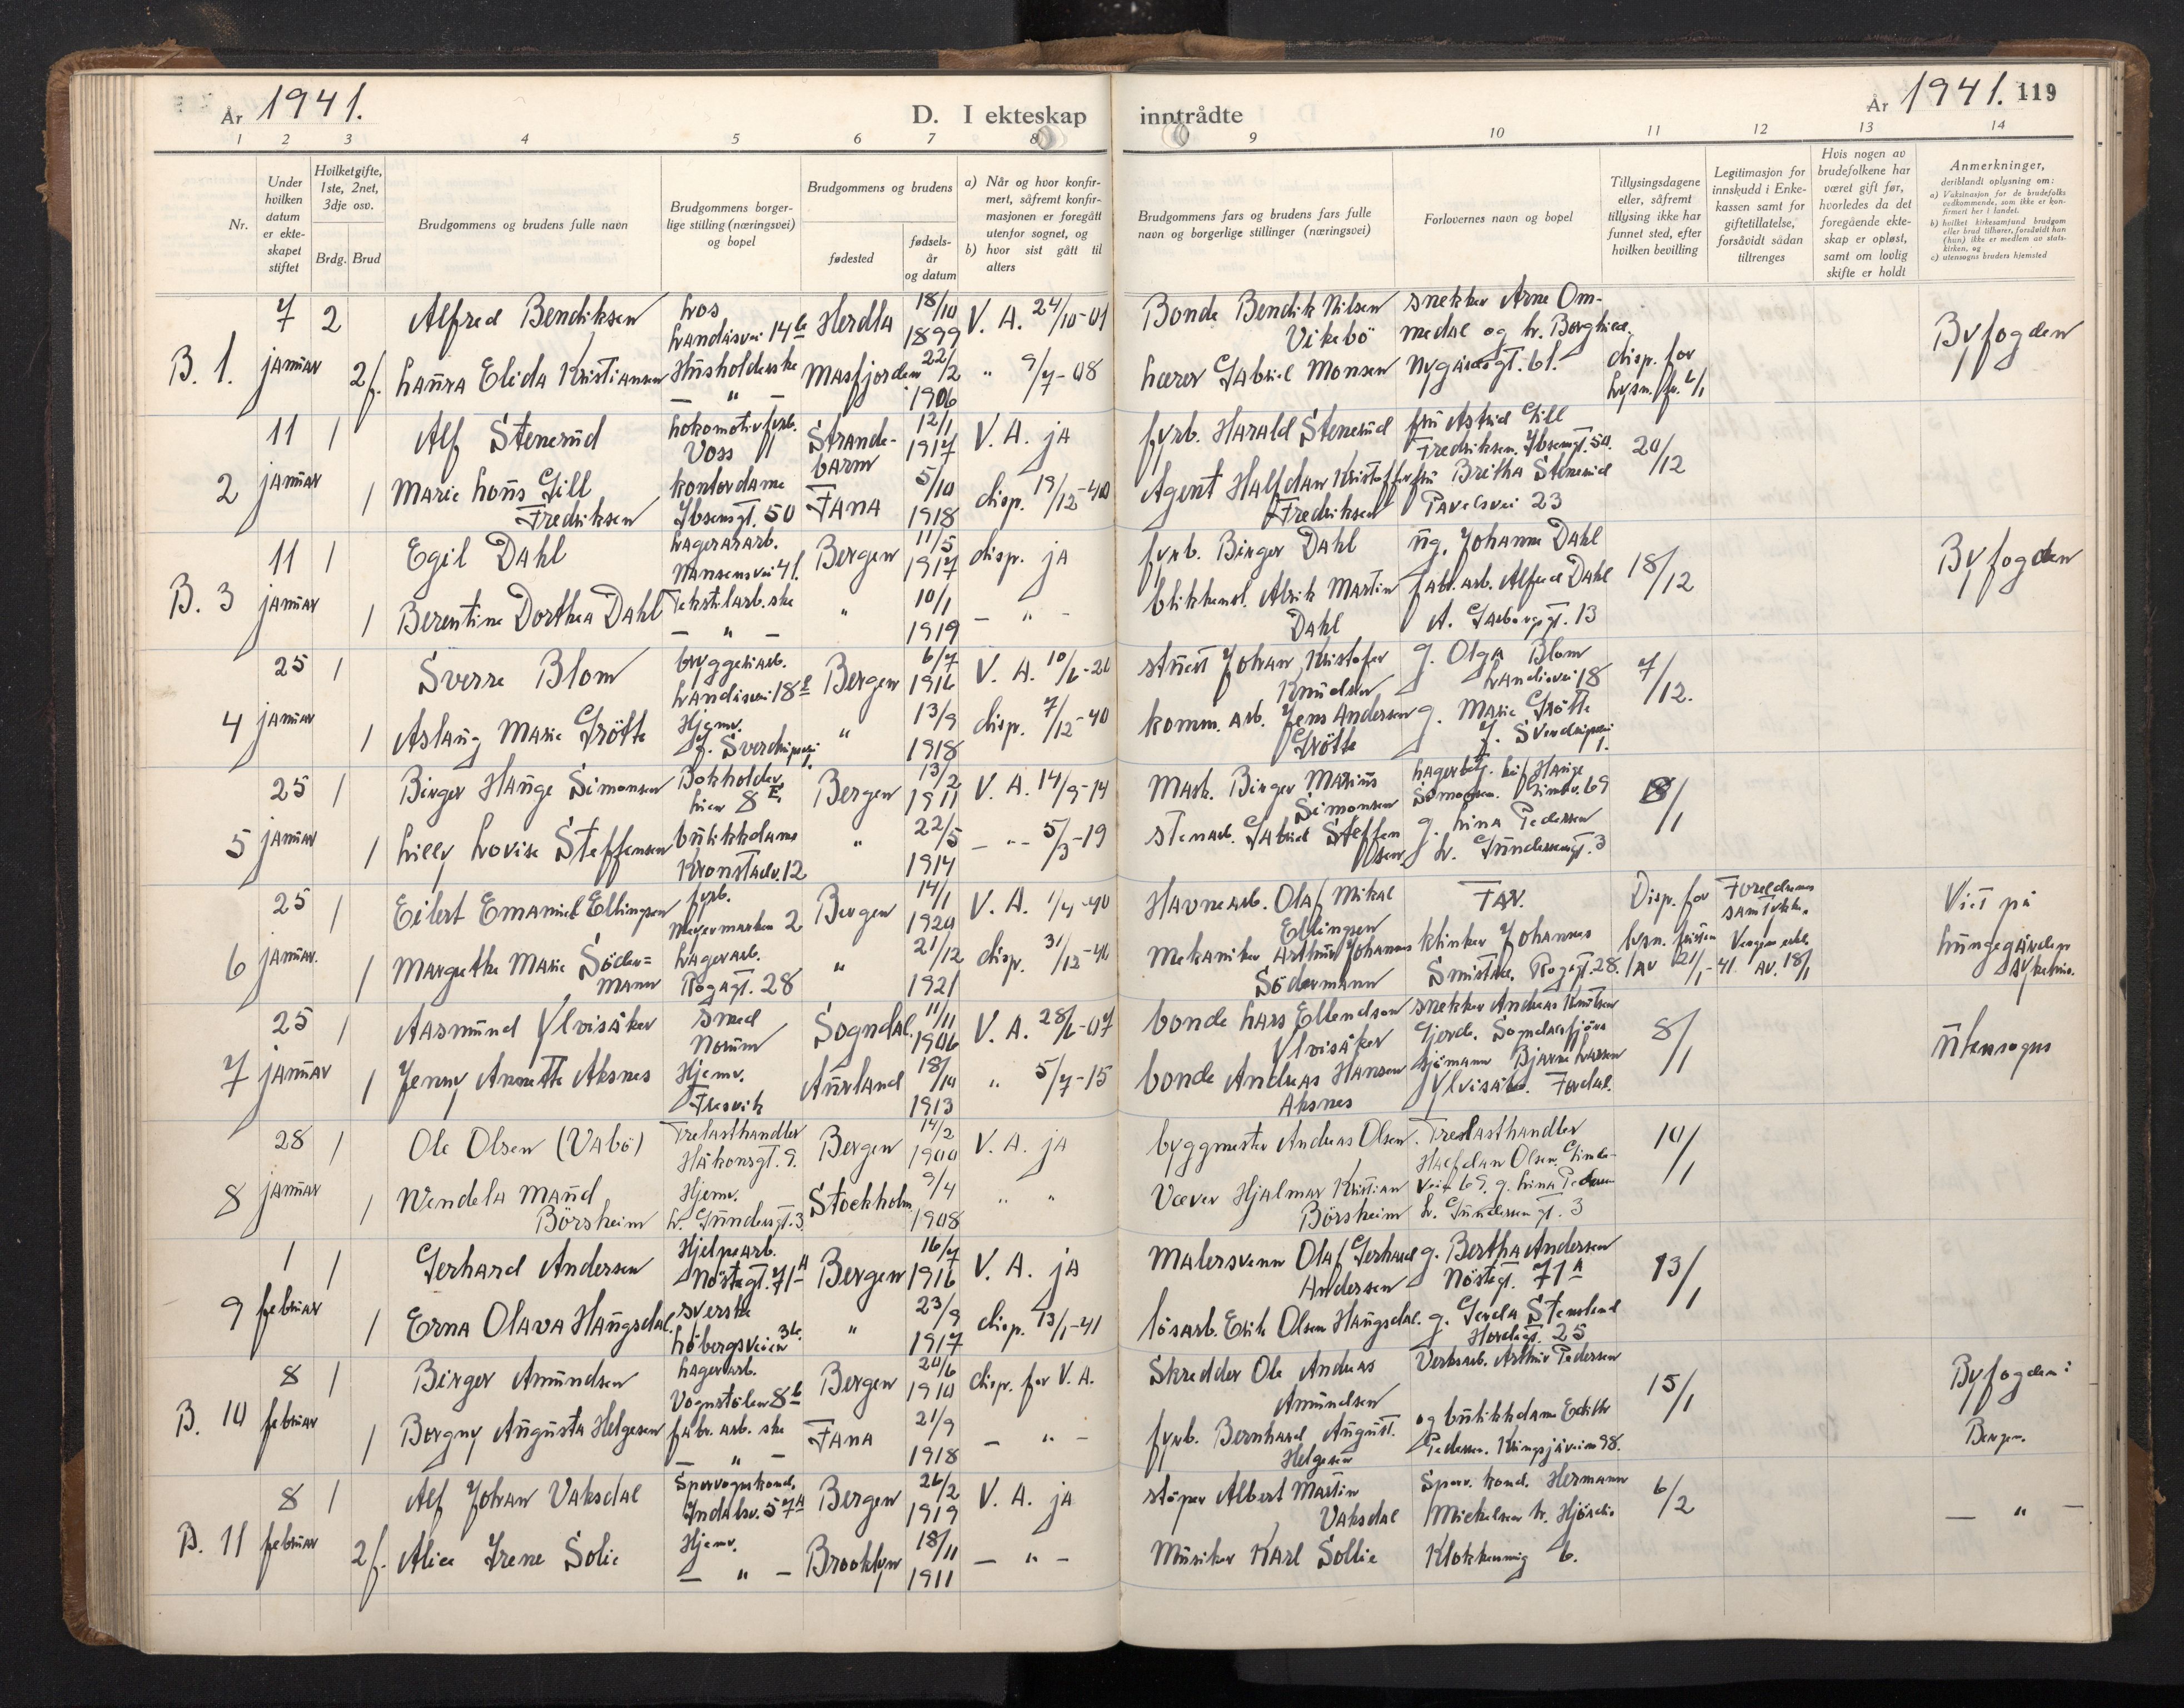 År 1941.
D. I ekteskap inntrådte
År 1941. 119
1 2 3 4 5 6 7 8 9 10 11 12 13 14
Nr.
Under hvilken datum er ekteskapet stiftet
Hvilketgifte, 1ste, 2net, 3dje osv.
Brdg. Brud
Brudgommens og brudens fulle navn
Brudgommens borgerlige stilling (næringsvei) og bopel
Brudgommens og brudens
fødested
fødselsår og datum
a) Når og hvor konfirmert, såfremt konfirmasjonen er foregått utenfor sognet, og
b) hvor sist gått til alters
Brudgommens fars og brudens fars fulle navn og borgerlige stillinger (næringsvei)
Forlovernes navn og bopel
Tillysingsdagene eller, såfremt tillysing ikke har funnet sted, efter hvilken bevilling
Legitimasjon for innskudd i Enkekassen samt for giftetillatelse, forsåvidt sådan tiltrenges
Hvis nogen av brudefolkene har været gift før, hvorledes da det foregående ekteskap er opløst, samt om lovlig skifte er holdt
Anmerkninger,
deriblandt oplysning om:
a) Vaksinasjon for de brudefolks vedkommende, som ikke er konfirmert her i landet.
b) hvilket kirkesamfund brudgom eller brud tilhører, forsåvidt han (hun) ikke er medlem av statskirken, og
c) utensogns bruders hjemsted
7 2 Alfred Bendiksen Landåsvei 14b Herdla 18/10 1899 V. A. 24/10-01 Bonde Bendik Nilsen Vikebö snekker Arne Ommedal og
B. 1. januar 2f. Laura Elida Kristiansen Husholderske — " — Masfjorden 22/2 1906 " 9/7-08 Lærer Gabriel Monsen Nygårdsgt. 61. disp. for lysn. Byfogden
11 1 Alf Stenerud Lokomotivfyrb. Voss Strandebarm 12/1 1917 V. A. ja fyrb. Harald Stenerud fru Astrid Gill Fredriksen. Ibsensgt. 50. 20/12
2 januar 1 Marie Louis Gill Fredriksen kontordame Ibsensgt. 50 Fana 5/10 1918 disp. 19/12-40 Agent Halfdan Kristoffer Fredriksen fru Bretha Stenerud Pavelsvei 23
11 1 Egil Dahl Lagerarb. Nansensvei 41. Bergen 11/5 1917 disp. ja fyrb. Birger Dahl ug. Johanne Dahl 18/12 Byfogden
B. 3 januar 1 Berentine Dorthea Dahl Tekstilarb.ske — " — " 10/1 1919 — " — blikkensl. Alrik Martin Dahl fabr. arb. Alfred Dahl A. Garborgsgt. 13
25 1 Sverre Blom bryggeriarb. Bergen 6/7 1916 V. A. stuert Johan Kristofer Knudsen g. Olga Blom 7/12.
4 januar 1 Aslaug Marie Grötte Hjemv. J. Sverdrupsvei 1. " 13/9 1918 disp. 7/12-40 komm. arb. Jens Andersen Grötte g. Marie Grötte J. Sverdrupsvei 1.
25 1 Birger Hauge Simonsen Bokholder Lien 8 E. Bergen 13/2 1911 V. A. 14/9-14 Mask. Birger Marius Simonsen
5 januar 1 Lilly Lovise Steffensen butikkdame Kronstadv. 12 " 22/5 1914 — " — 5/3-19 stenarb. Gabriel Steffensen g. Lina Pedersen L. Gundersensgt. 3
25 1 Eilert Emanuel Ellingsen fyrb. Meyermarken 2 Bergen 14/1 1920 V. A. 1/7-40 Havnearb. Olaf Mikal Ellingsen Far. Disp. for Foreldrenes samtykke Viet på
6 januar. 1 Margrethe Marie Södermann Lagerarb. Rogagt. 28 " 21/12 1921 disp. 31/12-40 Mekaniker Arthur Johannes Södermann Klinker Johannes Rogagt. 28. av 21/1-41. av. 18/1 Lungegårdens sykehus.
25 1 Aasmund Ylvisåker smed Norum Sogndal. 11/11 1906 V. A. 28/6-07 bonde Lars Ellendson Ylvisåker snekker Andreas Knutsen Gjerde. Sogndalsfjöra 8/1 utensogns
7 januar 1 Jenny Annette Aksnes Hjemv. Fresvik Aurland 18/10 1913 " 5/7-15 bonde Andreas Hansen Aksnes sjömann Bjarne Larsen Ylvisåker.
28 1 Ole Olsen (Vabö) Trelasthandler Håkonsgt. 9. Bergen 14/2 1900 V. A. ja byggmester Andreas Olsen. Trelasthandler Halfdan Olsen, 10/1
8 januar 1 Wendela Maud Börsheim Hjemv. L. Gundersgt. 3. Stockholm 9/4 1908 " " Væver Hjalmar Kristian Börsheim g. Lina Pedersen L. Gundersensgt. 3
1 1 Gerhard Andersen Hjelpearb. Nöstegt. 71A Bergen 16/7 1916 V. A. ja Malersvenn Olaf Gerhard Andersen g. Bertha Andersen Nöstegt. 71A 13/1
9 februar 1 Erna Olava Haugsdal. syerske Löbergsveien 36. " 23/9 1917 disp. 13/1-41 lösarb. Erik Olsen Haugsdal. g. Gerda Stensland Hordagt. 25
8 1 Birger Amundsen Lagerarb. Vognstölen 8b Bergen 20/6 1910 disp. for V. A. Skredder Ole Andreas Amundsen Verksarb. Arthur Pedersen 15/1 Byfogden i
B. 10 februar 1 Borgny Augusta Helgesen fabr. arb. ske — " — Fana 21/9 1918 — " — fyrb. Bernhard August. Helgesen og butikkdame Edith Pedersen. Bergen.
8 1 Alf Johan Vaksdal Sporvognskond. Indalsv. 57A Bergen 26/2 1919 V. A. ja stöper Albert Martin Vaksdal Sporv. kond. Hermann Mickelsen 6/2 — " —
B. 11 februar 2f. Alice Irene Solie Hjemv. — " — Brooklyn 18/11 1911 — " — Musiker Karl Sollie